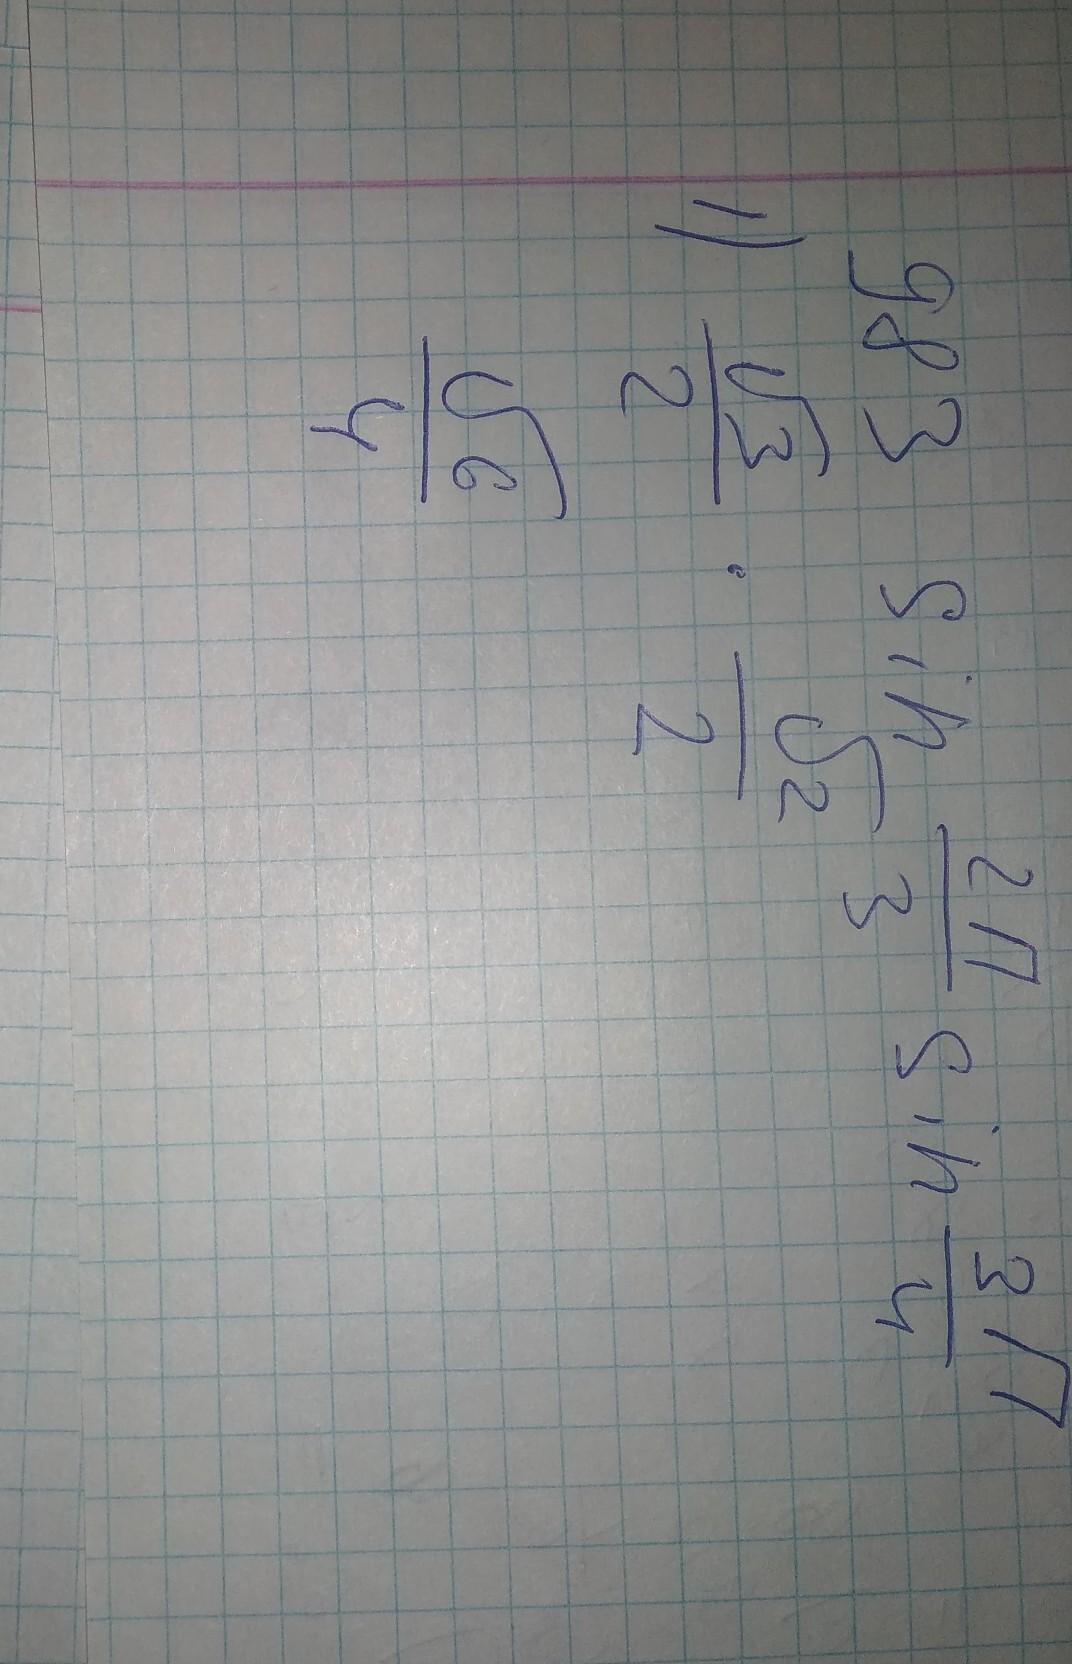 983 sin 2π/3 sin 3π/4
1) √3/2 · √2/2
√6/4